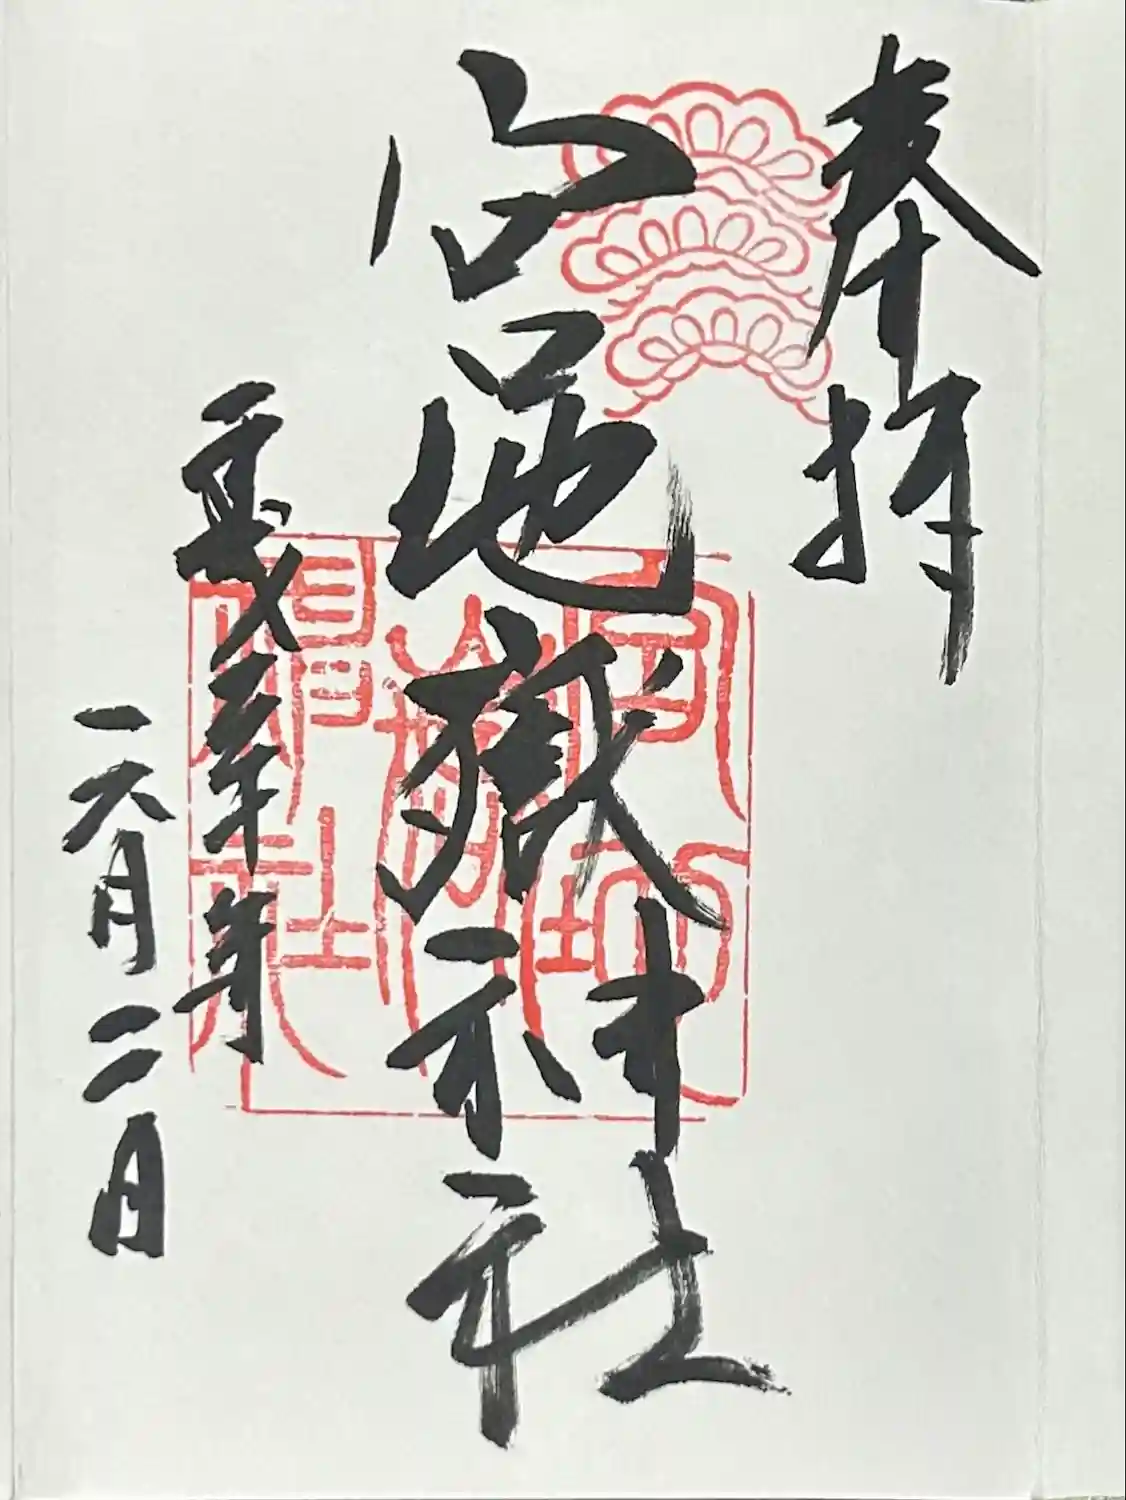 奉拝
宮地嶽神社
年
六月二日
宮地嶽神社